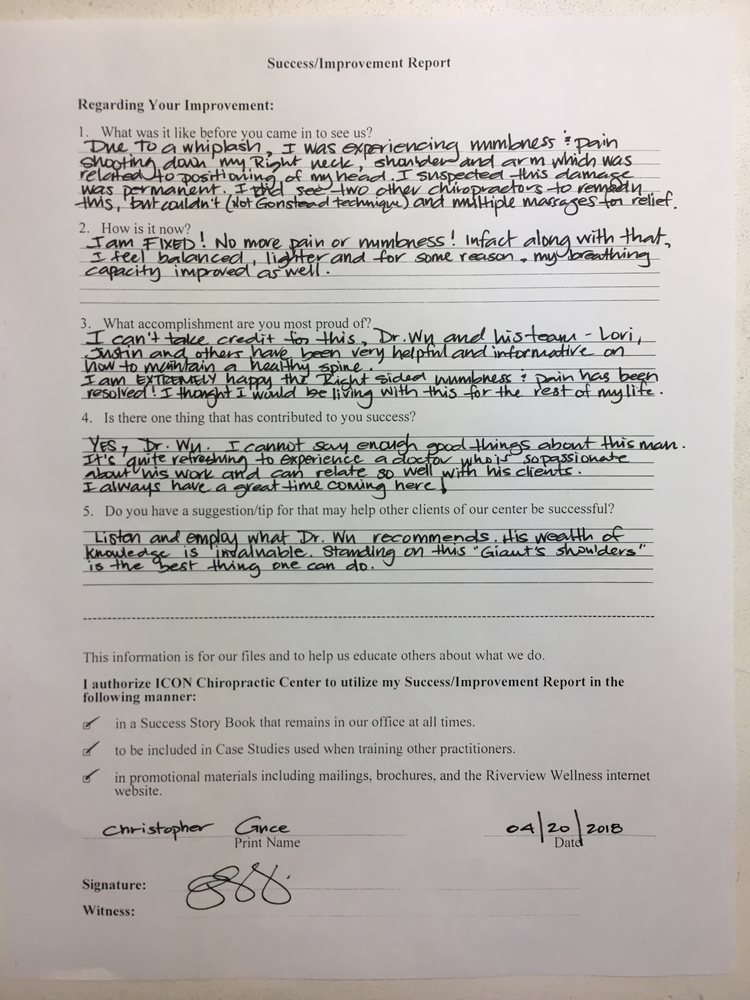 Success/Improvement Report
Regarding Your Improvement:
1. What was it like before you came in to see us?
Due to a whiplash, I was experiencing numbness & pain
shooting down my Right neck, shoulder and arm which was
related to positioning of my head. I suspected this damage
was permanent. I did see two other chiropractors to remedy
this, but couldn't (Not Gonstead technique) and multiple massages for relief.
2. How is it now?
I am FIXED! No more pain or numbness! Infact along with that,
I feel balanced, lighter and for some reason, my breathing
capacity improved as well.
3. What accomplishment are you most proud of?
I can't take credit for this, Dr. Wu and his team - Lori,
Justin and others have been very helpful and informative on
how to maintain a healthy spine.
I am EXTREMELY happy the Right sided numbness & pain has been
resolved! I thought I would be living with this for the rest of my life.
4. Is there one thing that has contributed to you success?
YES, Dr. Wu. I cannot say enough good things about this man.
It's quite refreshing to experience a doctor who is so passionate
about his work and can relate so well with his clients.
I always have a great time coming here!
5. Do you have a suggestion/tip for that may help other clients of our center be successful?
Listen and employ what Dr. Wu recommends. His wealth of
knowledge is invaluable. Standing on this "Giant's shoulders"
is the best thing one can do.
This information is for our files and to help us educate others about what we do.
I authorize ICON Chiropractic Center to utilize my Success/Improvement Report in the
following manner:
in a Success Story Book that remains in our office at all times.
to be included in Case Studies used when training other practitioners.
in promotional materials including mailings, brochures, and the Riverview Wellness internet
website.
Christopher 04/20/2018
Print Name Date
Signature:
Witness: